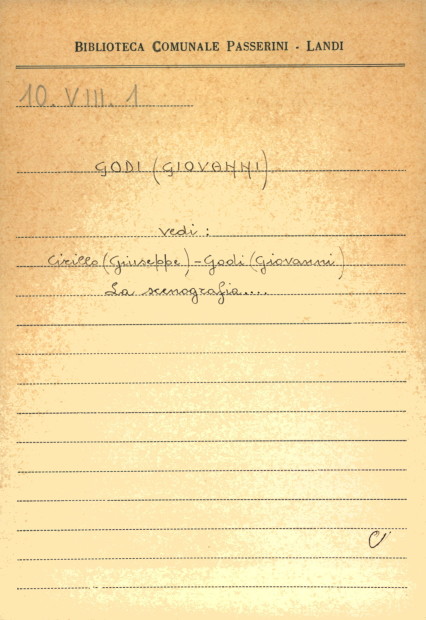 BIBLIOTECA COMUNALE PASSERINI - LANDI
10. VIII. 1
GODI (GIOVANNI)
vedi:
Cirillo (Giuseppe) - Godi (Giovanni)
La scenografia....